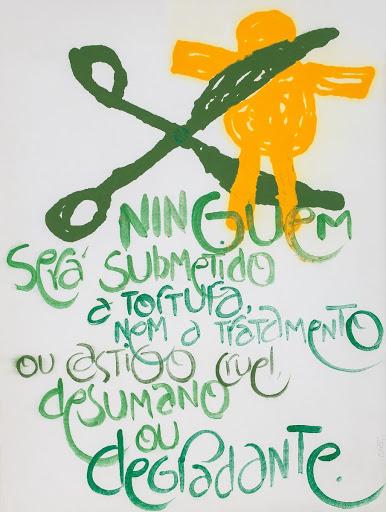 NINGUEM
Será SUBMETIDO
a TORTURA,
NEM a TRATAMENTO
OU CASTIGO cruel,
desumano
OU
degradante.